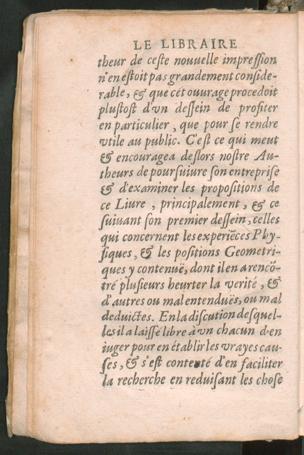 LE LIBRAIRE
theur de ceste nouuelle impression
n'en estoit pas grandement conside-
rable, & que cét ouurage procedoit
plustost d'vn dessein de profiter
en particulier, que pour se rendre
vtile au public. C'est ce qui meut
& encouragea deslors nostre Au-
theurs de poursuiure son entreprise
& d'examiner les propositions de
ce Liure, principalement, & ce
suiuant son premier dessein, celles
qui concernent les experiẽces Phy-
siques, & les positions Geometri-
ques y contenuës, dont il en a rencõ-
tré plusieurs heurter la verité, &
d'autres ou mal entenduës, ou mal
deduictes. En la discution desquel-
les il a laissé libre à vn chacun d'en
iuger pour en établir les vrayes cau-
ses, & s'est contenté d'en faciliter
la recherche en reduisant les chose